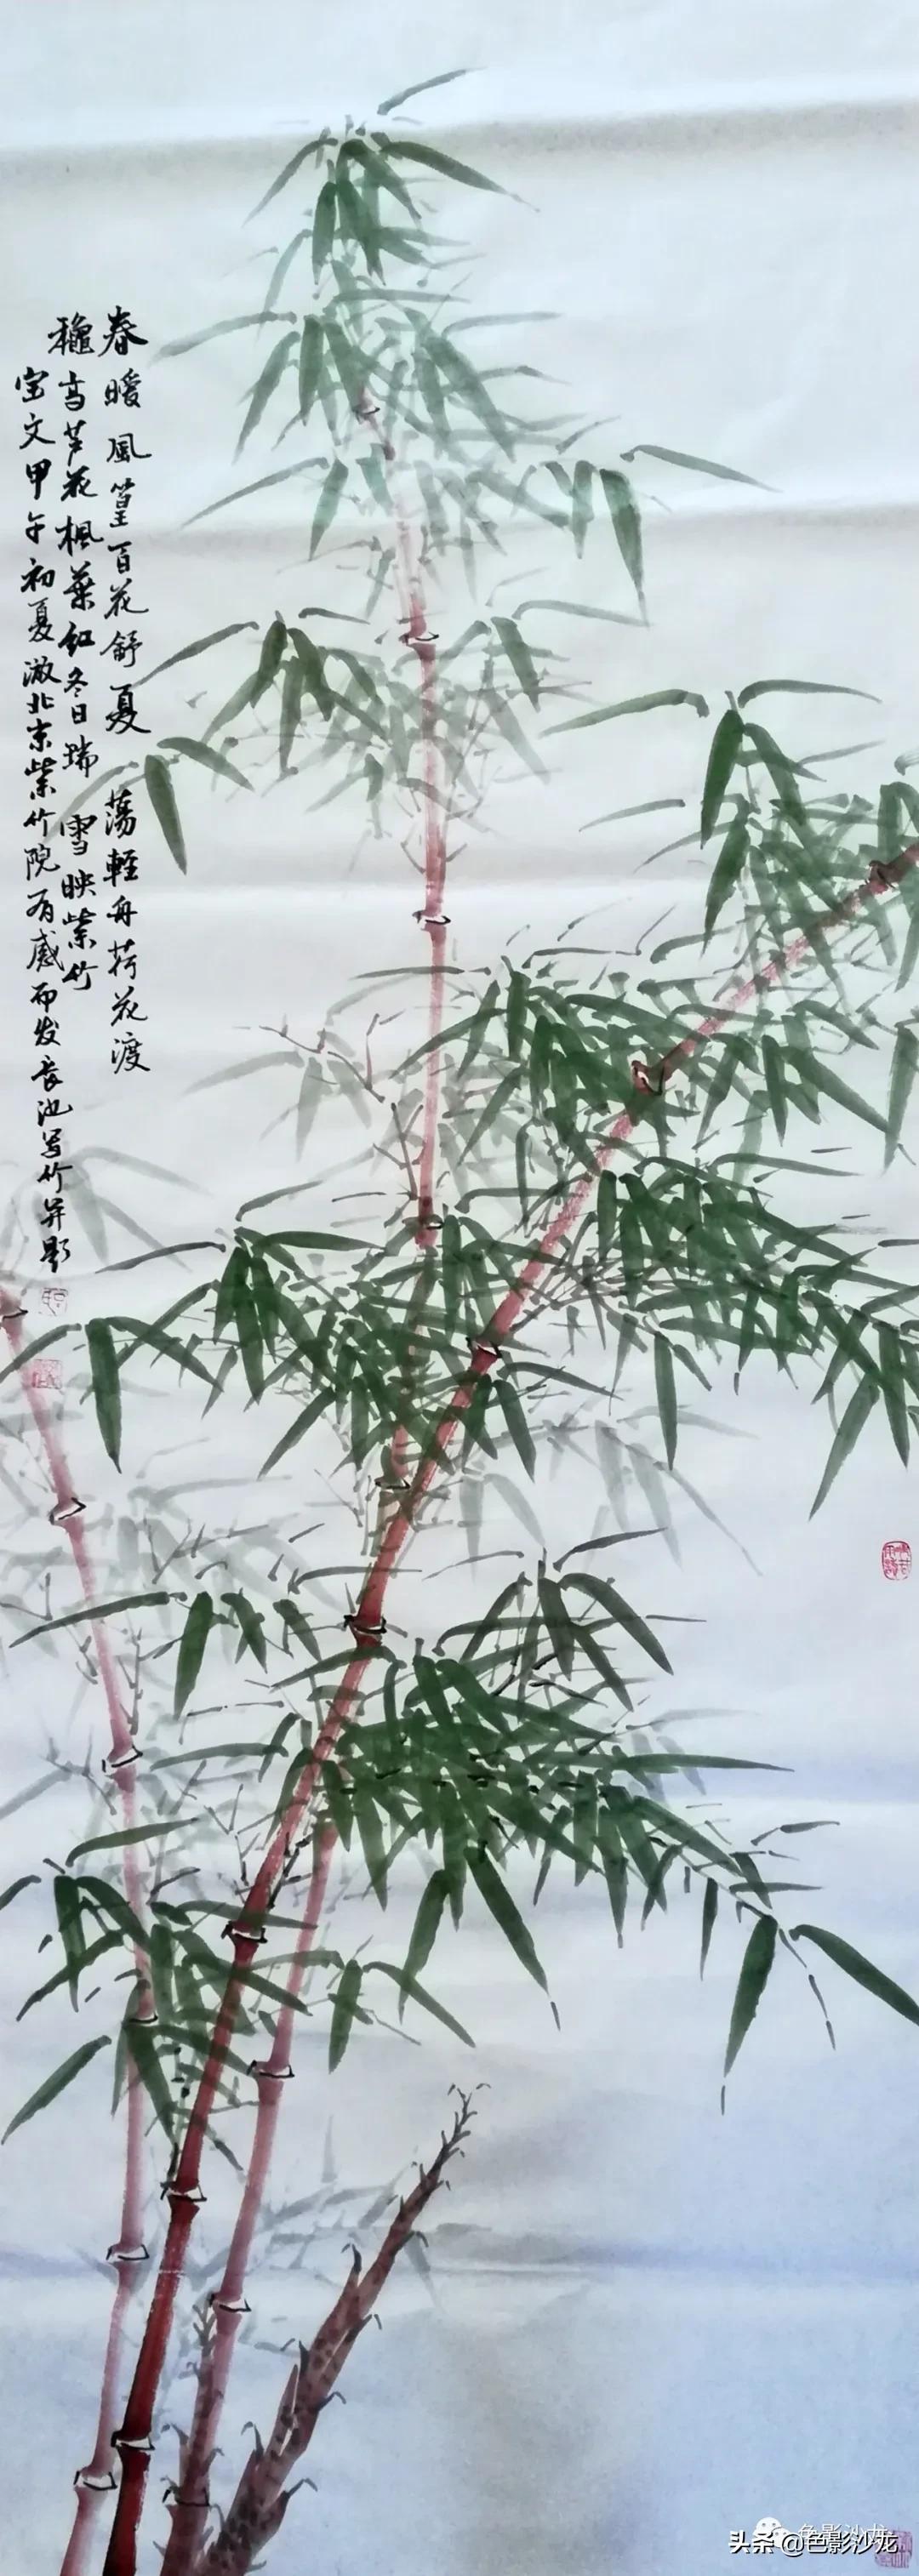 春暖風篁百花舒夏蕩輕舟荷花渡
龝高芦花楓葉紅冬日瑞雪映紫竹
宝文甲午初夏激北京紫竹院有感而发長池写竹并题
色影沙龙
头条 @色影沙龙